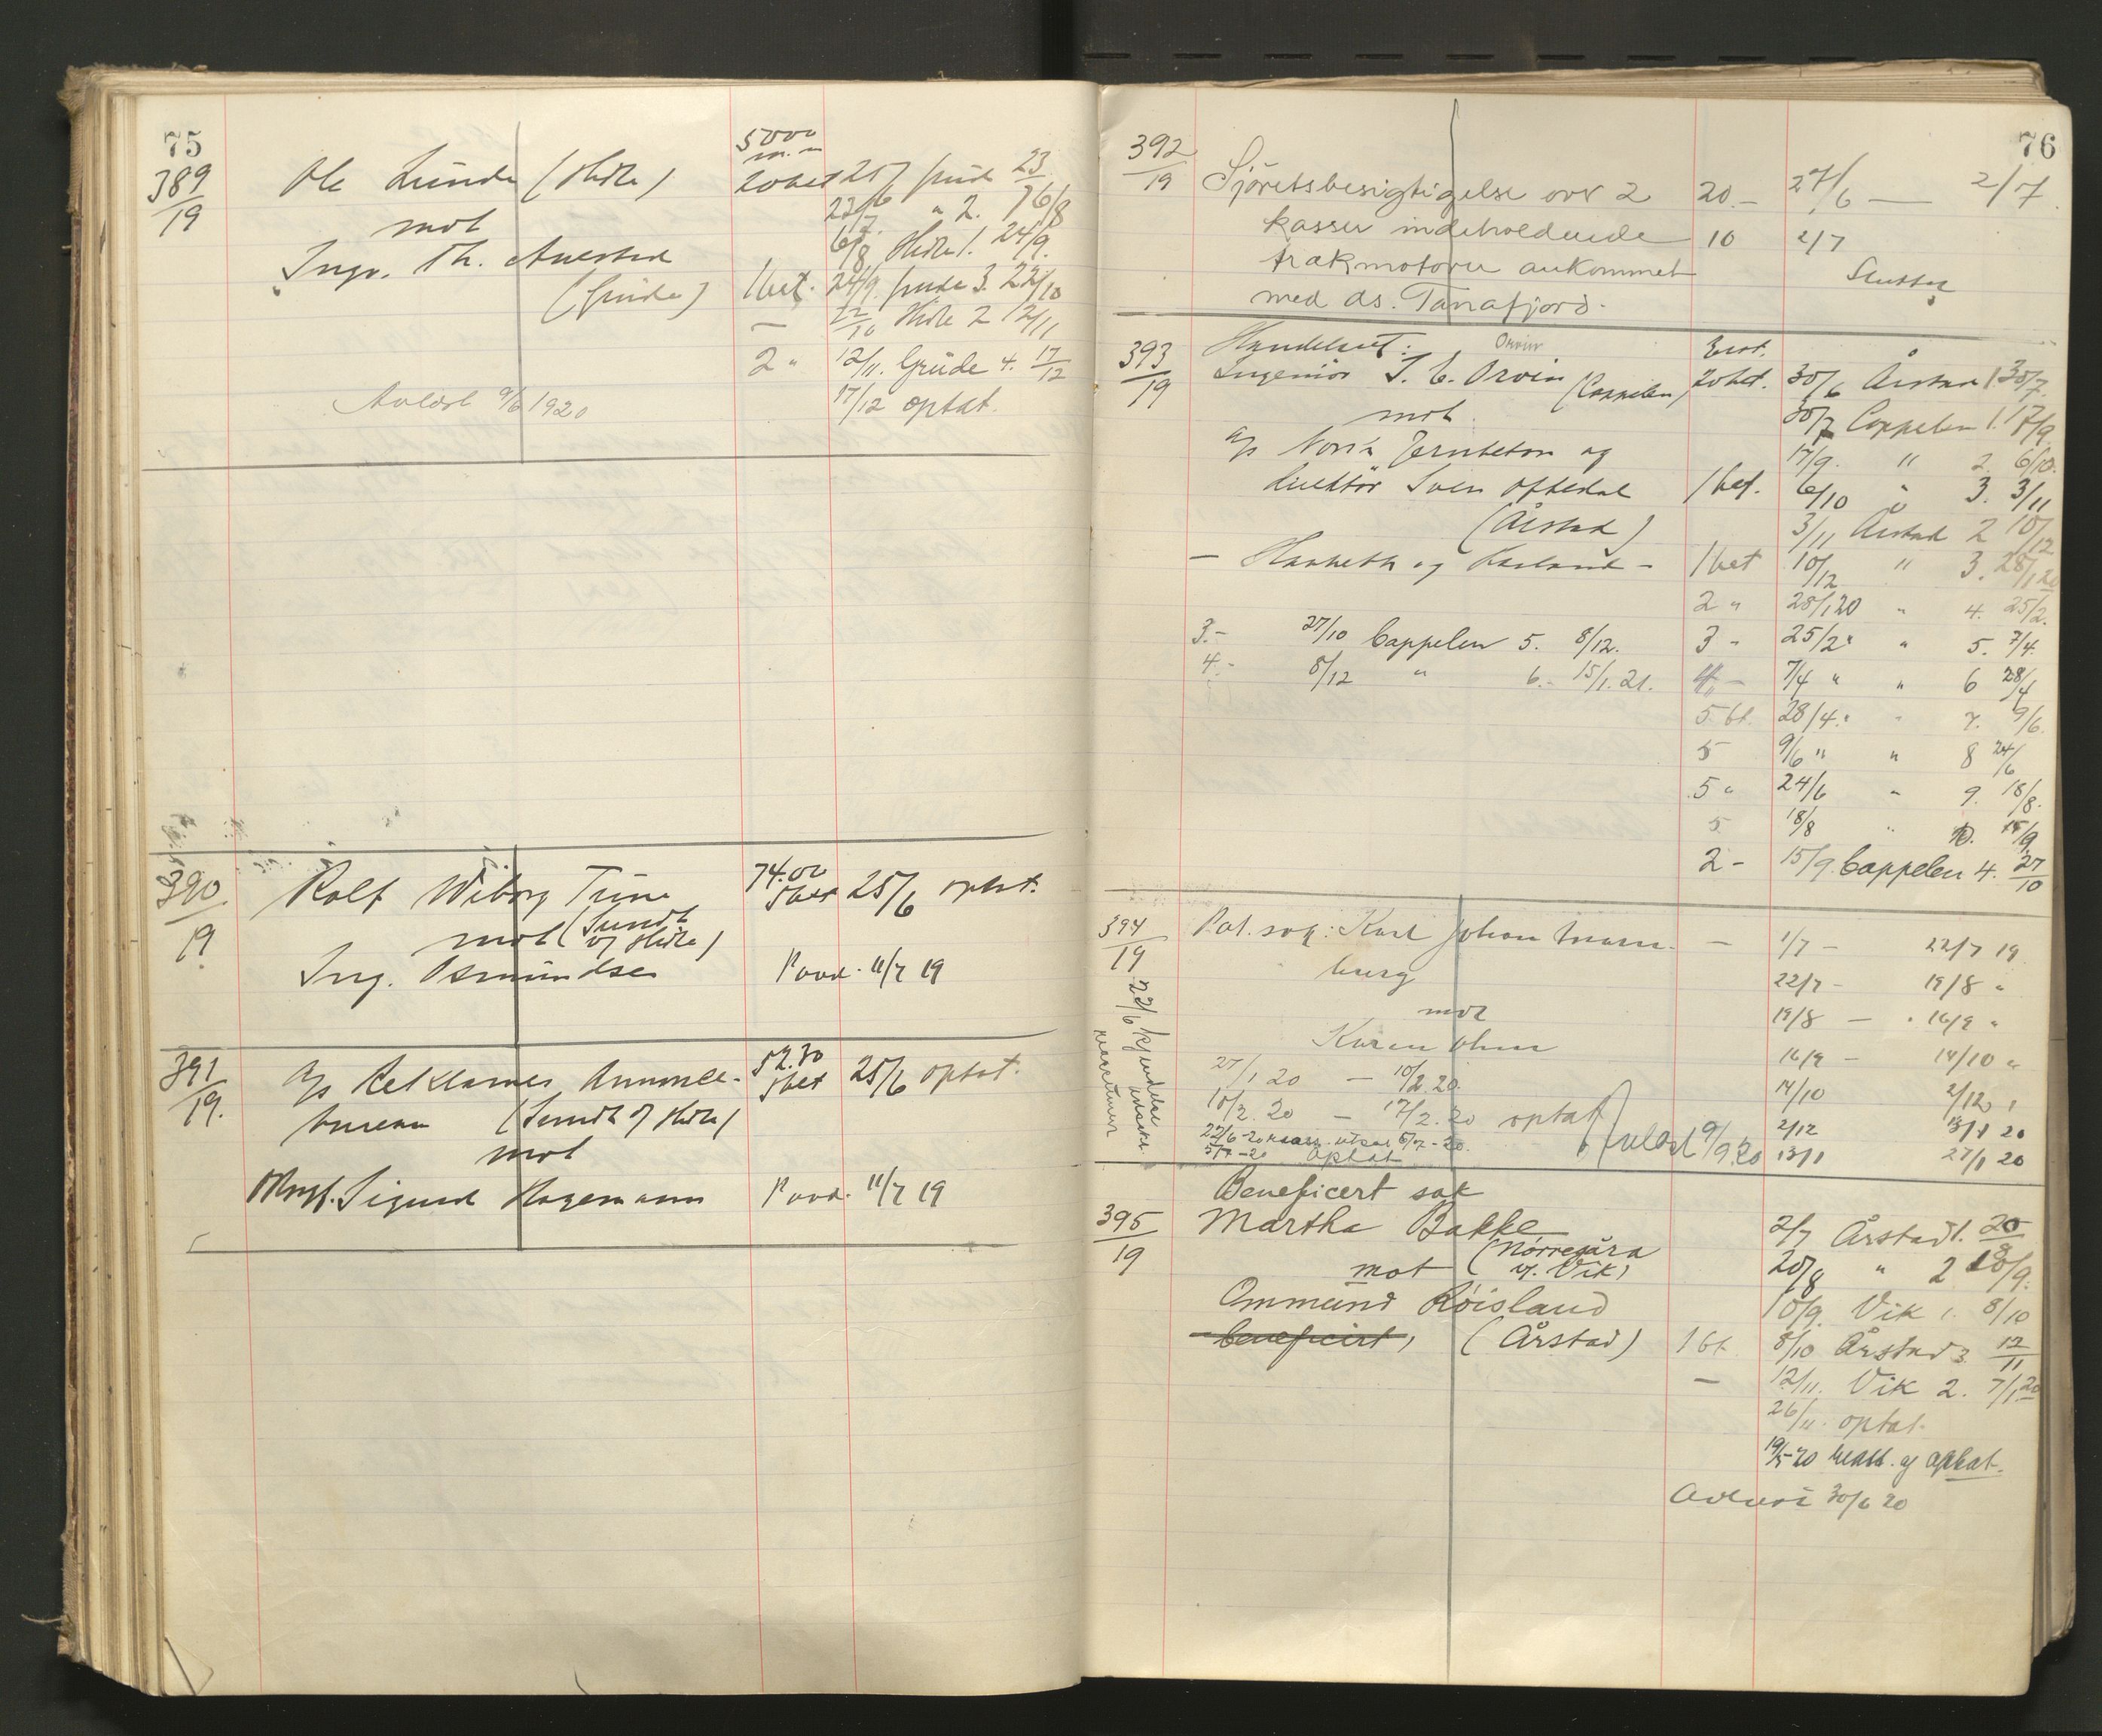 75
389/19
Ole Lunde (Hidle)
mot
Ingv. Th. Auestad
(Grude)
5000
20 bet 25/6 Grude 23/7
23/7 " 2. 6/8
6/8 Hidle 1. 24/9.
1 bet. 24/9. Grude 3. 22/10
— 22/10 Hidle 2 12/11
2 " 12/11. Grude 4. 17/12
17/12 optat.
Avläst 9/6 1920
390/19
Rolf Wiborg Tune
mot (Sundt og Hidle)
Ing. Osmundsen
74.00
5 bet 25/6 optat.
Paad. 11/7 19
391/19.
A/s Reklamer Annonce-
bureau (Sundt og Hidle)
mot
Sigurd Hagemann
52.30
5 bet 25/6 optat.
Paad. 11/7 19
76
392/19
Sjøretsbesigtigelse over 2
kasser indeholdende
trakmotorer ankommet
med ds. Tanafjord.
20.- 27/6 — 2/7.
10 2/7
Sluttet
393/19
Handelsret: Orvin
Ingeniør J. C. Orvin (Cappelen)
mot
A/s Norsk Jernbeton og
direktør Sven Oftedal
(Årstad)
20 bet. 30/6 Årstad 1 30/7.
30/7 Cappelen 1. 17/9.
17/9. " 2. 6/10.
1 bet. 6/10 " 3. 3/11
3/11 Årstad 2 10/12
1 bet 10/12 " 3. 28/1 20
2 " 28/1 20 " 4. 25/2.
3 - 25/2 " " 5. 7/4.
4 - 7/4 " " 6 28/4
5 bt. 28/4. " " 7. 9/6.
5 9/6 " " 8 24/6
5 " 24/6 " 9. 18/8.
5 18/8 " 10. 15/9.
2 - 15/9. Cappelen 4. 27/10
3.- 27/10 Cappelen 5. 8/12.
4.- 8/12 " 6.- 15/1. 21.
394/19
Pat. sag: Karl Johan
burg
mot
Karen Ohm
— 1/7 - 22/7 19
22/7 - 19/8 "
19/8 — 16/9 "
16/9 - 14/10 "
14/10 2/12
2/12 13/1 20
13/1 27/1 20
27/1 20 — 10/2 20.
10/2. 20 — 17/2. 20 optat
22/6-20 utsat 5/7-20.
5/7-20 optat
Avläst 9/9 20
22/6 kjendelse
395/19
Beneficert sak
Martha Bakke
mot (Nørregåra v. Vik)
Ommund Røisland
beneficirt, (Årstad)
2/7 Årstad 1. 20/8
20/8 " 2 10/9.
10/9. Vik 1. 8/10
1 bt. 8/10 Årstad 3. 12/11
— 12/11. Vik 2. 7/1 20
26/11. optat.
19/5-20 og optat.
30/6 20